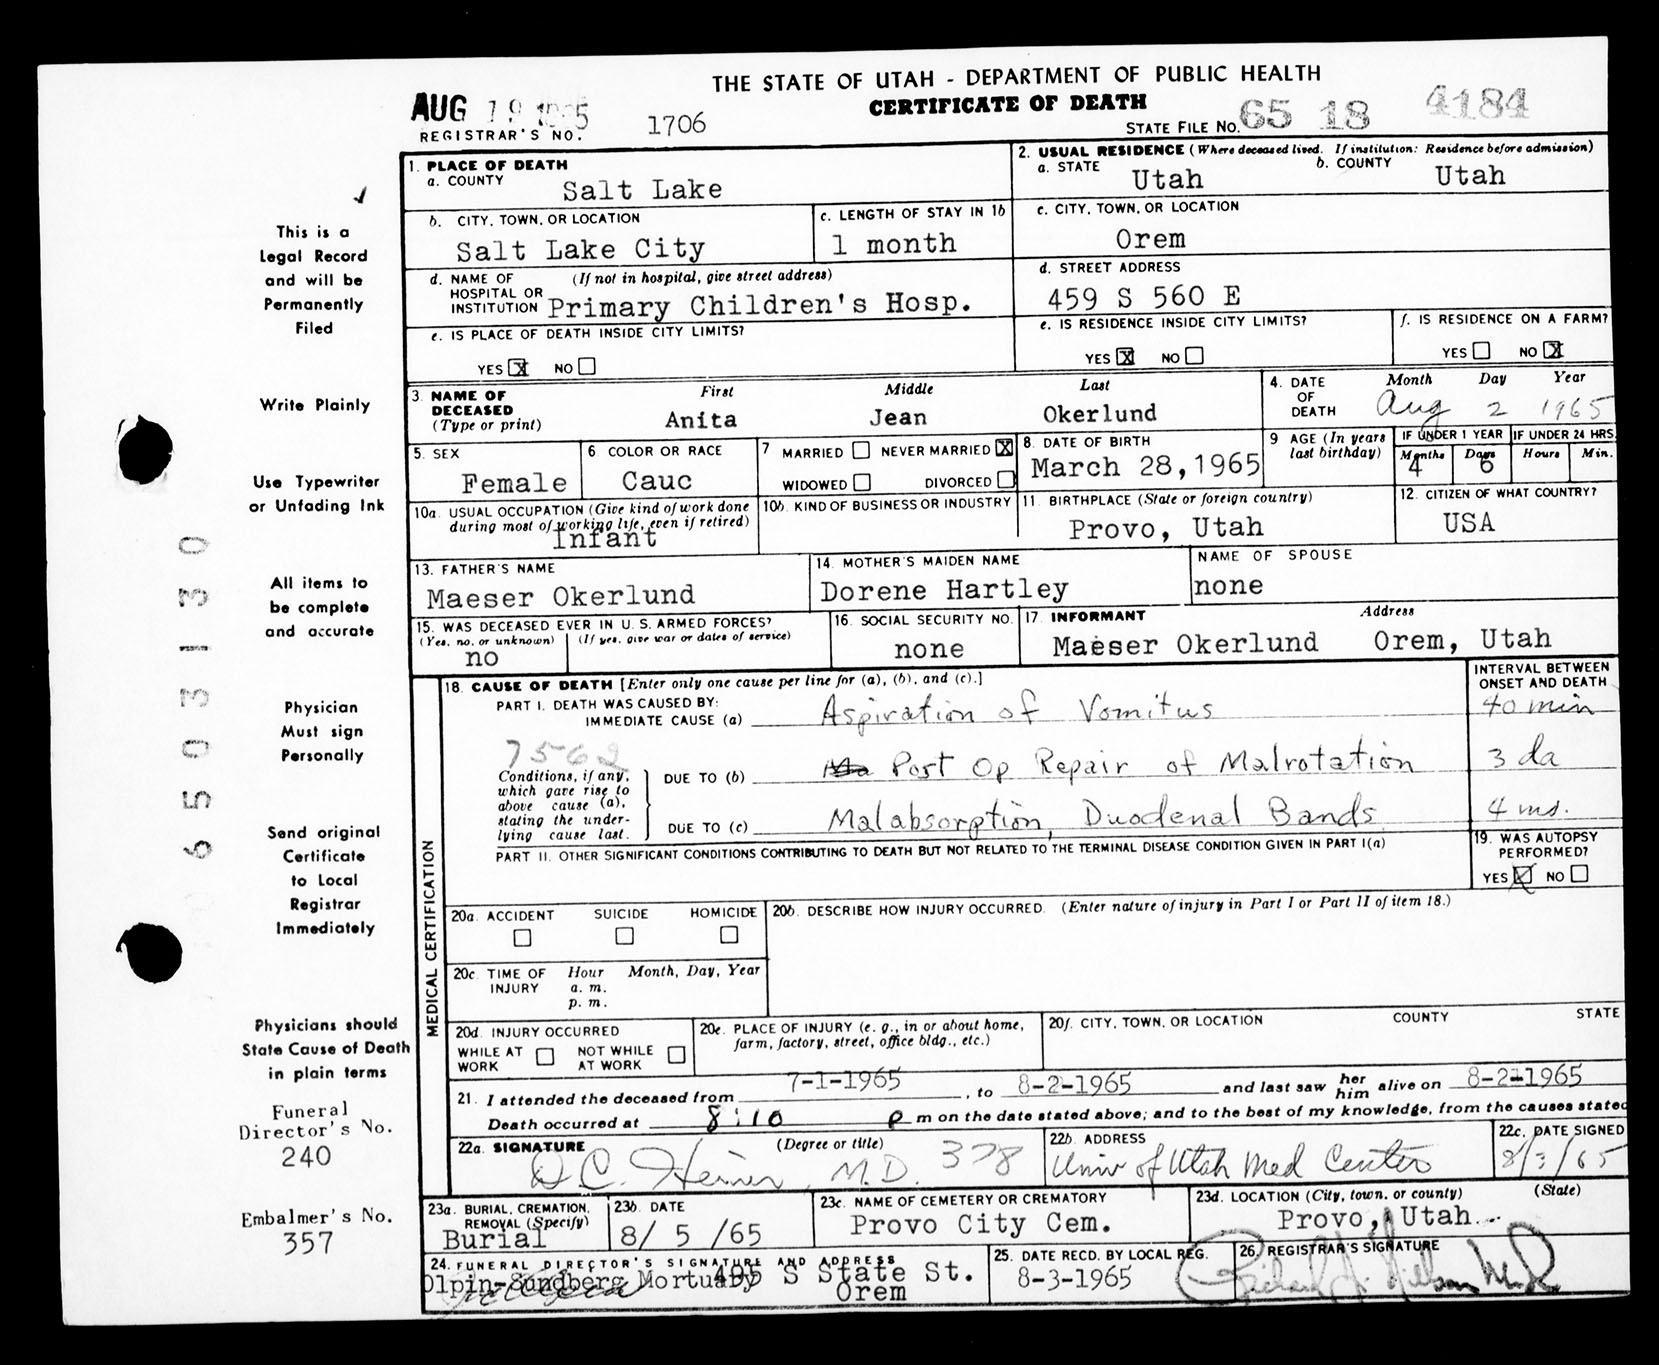 THE STATE OF UTAH - DEPARTMENT OF PUBLIC HEALTH
CERTIFICATE OF DEATH
AUG 19 1965
REGISTRAR'S NO. 1706
STATE FILE NO. 65 18 4184
1. PLACE OF DEATH
a. COUNTY Salt Lake
2. USUAL RESIDENCE (Where deceased lived. If institution: Residence before admission)
a. STATE Utah b. COUNTY Utah
b. CITY, TOWN, OR LOCATION Salt Lake City
c. LENGTH OF STAY IN 1b 1 month
c. CITY, TOWN, OR LOCATION Orem
d. NAME OF HOSPITAL OR INSTITUTION (If not in hospital, give street address) Primary Children's Hosp.
d. STREET ADDRESS 459 S 560 E
e. IS PLACE OF DEATH INSIDE CITY LIMITS?
YES X NO
e. IS RESIDENCE INSIDE CITY LIMITS?
YES X NO
f. IS RESIDENCE ON A FARM?
YES NO X
3. NAME OF DECEASED (Type or print)
First Middle Last
Anita Jean Okerlund
4. DATE OF DEATH Month Day Year
Aug 2 1965
5. SEX Female
6 COLOR OR RACE Cauc
7 MARRIED NEVER MARRIED X
WIDOWED DIVORCED
8. DATE OF BIRTH March 28, 1965
9 AGE (In years last birthday)
IF UNDER 1 YEAR Months 4 Days 6
IF UNDER 24 HRS. Hours Min.
10a. USUAL OCCUPATION (Give kind of work done during most of working life, even if retired) Infant
10b. KIND OF BUSINESS OR INDUSTRY
11. BIRTHPLACE (State or foreign country) Provo, Utah
12. CITIZEN OF WHAT COUNTRY? USA
13. FATHER'S NAME Maeser Okerlund
14. MOTHER'S MAIDEN NAME Dorene Hartley
NAME OF SPOUSE none
15. WAS DECEASED EVER IN U. S. ARMED FORCES?
(Yes, no, or unknown) (If yes, give war or dates of service)
no
16. SOCIAL SECURITY NO. none
17. INFORMANT Address
Maeser Okerlund Orem, Utah
MEDICAL CERTIFICATION
18. CAUSE OF DEATH [Enter only one cause per line for (a), (b), and (c).]
INTERVAL BETWEEN ONSET AND DEATH
PART I. DEATH WAS CAUSED BY:
IMMEDIATE CAUSE (a) Aspiration of Vomitus 40 min
7562
Conditions, if any, which gave rise to above cause (a), stating the underlying cause last.
DUE TO (b) Post Op Repair of Malrotation 3 da
DUE TO (c) Malabsorption, Duodenal Bands 4 mo.
PART II. OTHER SIGNIFICANT CONDITIONS CONTRIBUTING TO DEATH BUT NOT RELATED TO THE TERMINAL DISEASE CONDITION GIVEN IN PART I(a)
19. WAS AUTOPSY PERFORMED?
YES X NO
20a. ACCIDENT SUICIDE HOMICIDE
20b. DESCRIBE HOW INJURY OCCURRED. (Enter nature of injury in Part I or Part II of item 18.)
20c. TIME OF INJURY Hour Month, Day, Year
a. m.
p. m.
20d. INJURY OCCURRED
WHILE AT WORK NOT WHILE AT WORK
20e. PLACE OF INJURY (e. g., in or about home, farm, factory, street, office bldg., etc.)
20f. CITY, TOWN, OR LOCATION COUNTY STATE
21. I attended the deceased from 7-1-1965, to 8-2-1965 and last saw her him alive on 8-2-1965
Death occurred at 8:10 P m on the date stated above; and to the best of my knowledge, from the causes stated
22a. SIGNATURE (Degree or title)
D C. Heiner, M.D. 378
22b. ADDRESS Univ of Utah Med Center
22c. DATE SIGNED 8/3/65
23a. BURIAL, CREMATION, REMOVAL (Specify) Burial
23b. DATE 8/ 5 /65
23c. NAME OF CEMETERY OR CREMATORY Provo City Cem.
23d. LOCATION (City, town, or county) (State)
Provo, Utah
24. FUNERAL DIRECTOR'S SIGNATURE AND ADDRESS
Olpin-Sundberg Mortuary 495 S State St.
Orem
25. DATE RECD. BY LOCAL REG. 8-3-1965
26. REGISTRAR'S SIGNATURE
This is a
Legal Record
and will be
Permanently
Filed
Write Plainly
Use Typewriter
or Unfading Ink
All items to
be complete
and accurate
Physician
Must sign
Personally
Send original
Certificate
to Local
Registrar
Immediately
Physicians should
State Cause of Death
in plain terms
Funeral
Director's No.
240
Embalmer's No.
357
65031130